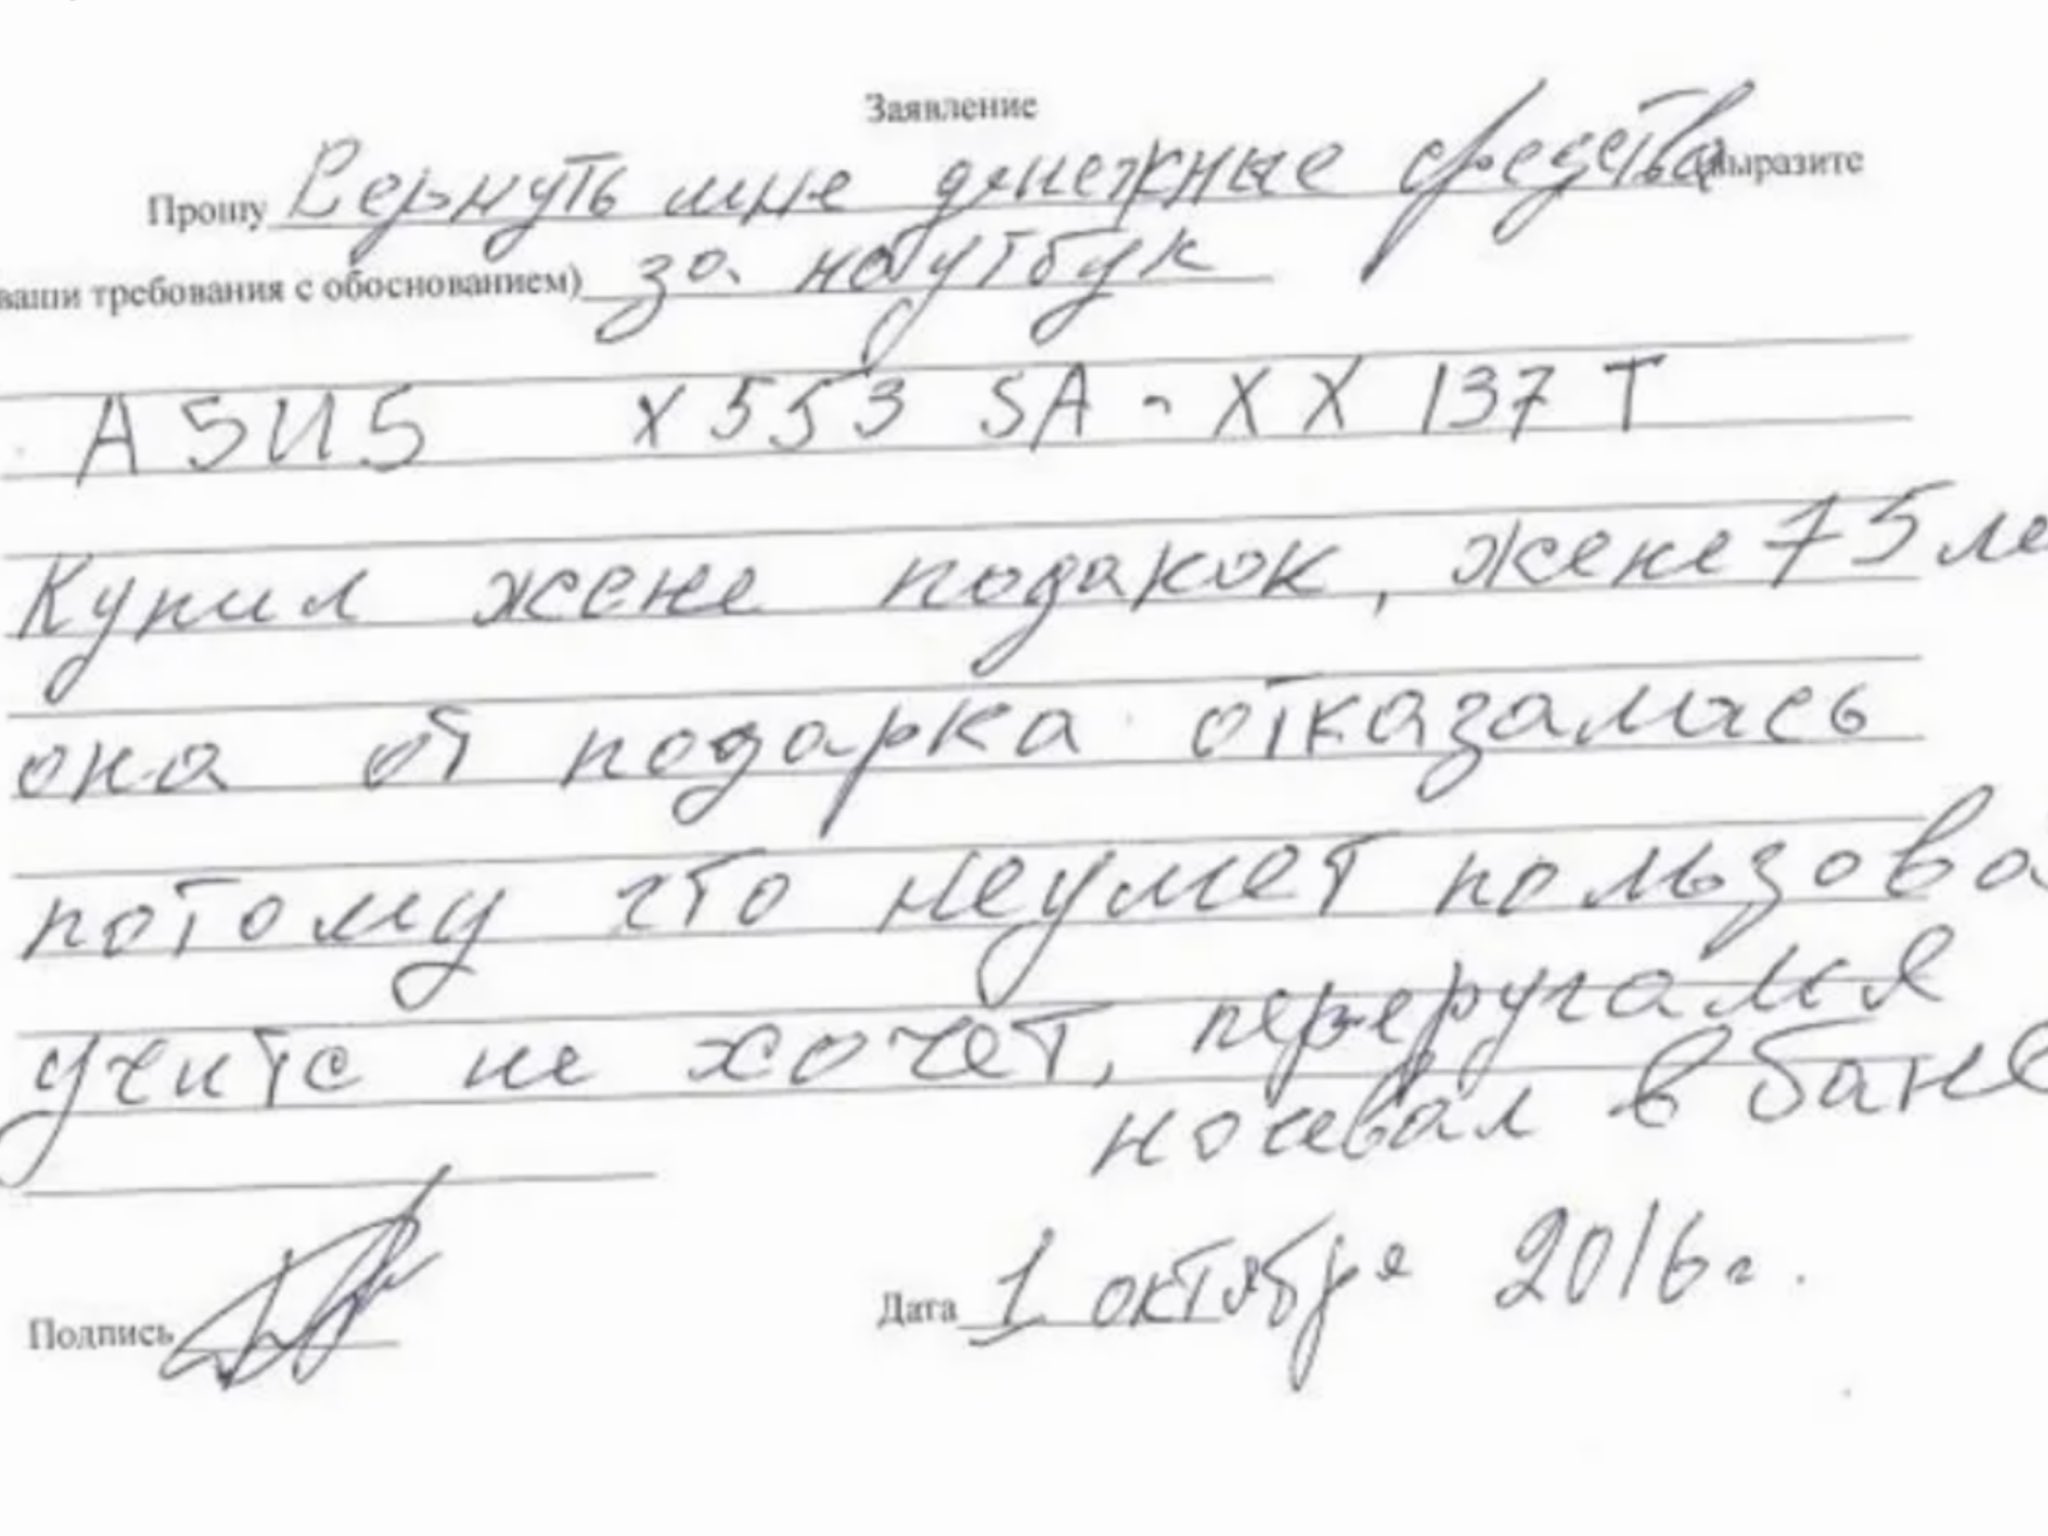 Заявление
Прошу Вернуть мне денежные средства (выразите
ваши требования с обоснованием) за ноутбук
ASUS X553 SA - XX 137 T
Купил жене подакок, жене 75 ле
она от подарка отказалась
потому что неумет пользова
учитс не хочет, переругался
ночевал в бане
Подпись Дата 1 октября 2016 г.